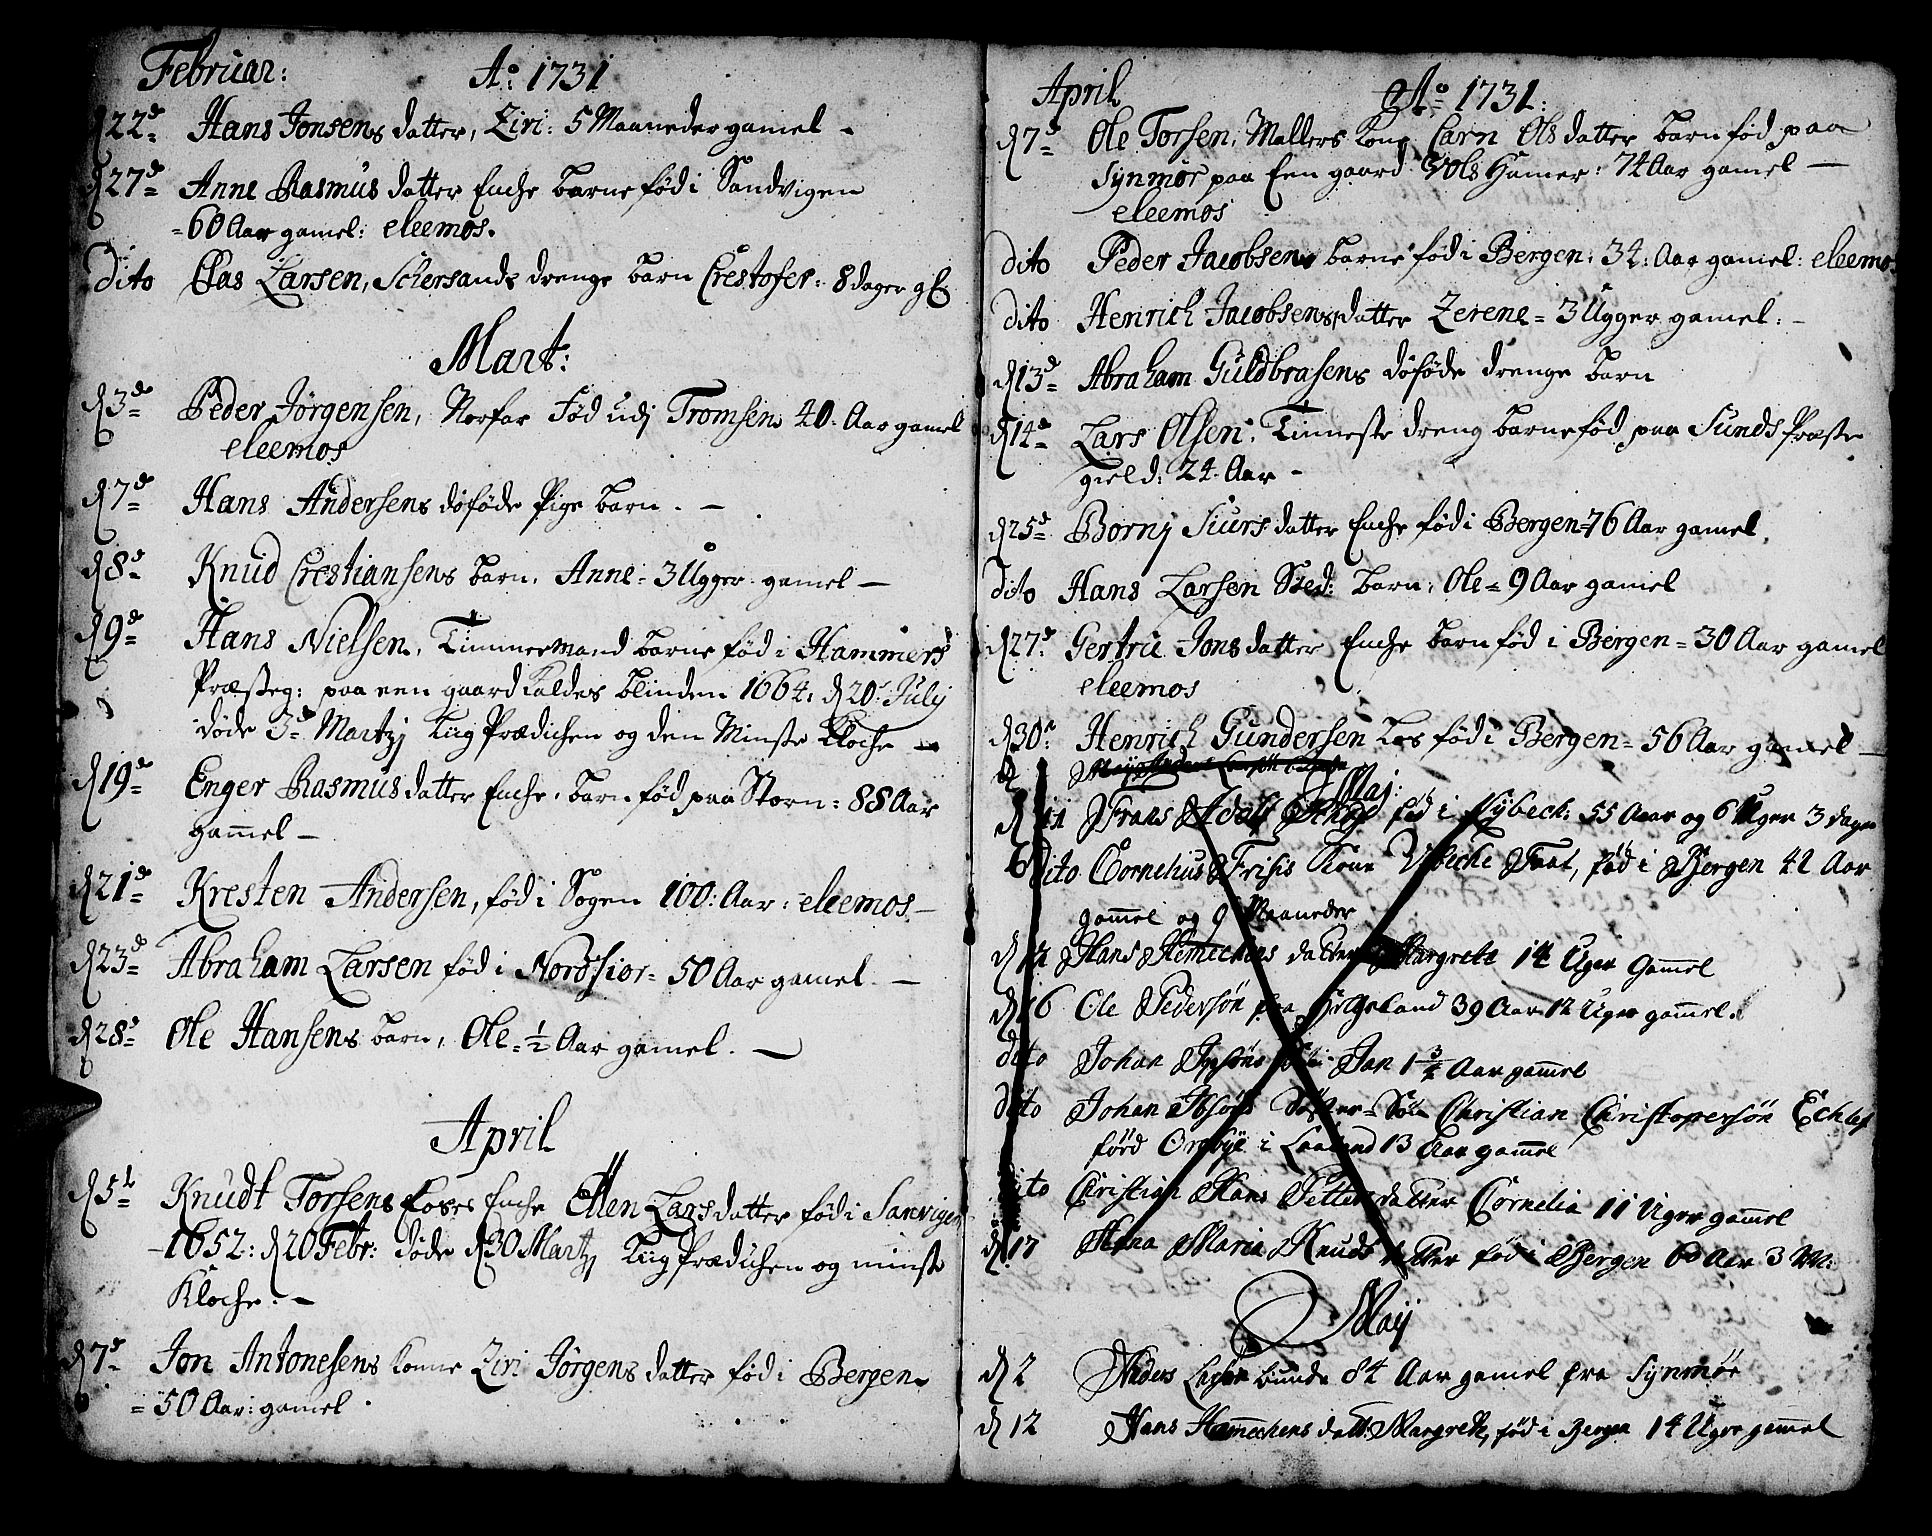 Februar: Ao 1731
d 22d Hans Jonsens datter, Ziri: 5 Maaneder gamel -
d 27d Anne Rasmus datter Enche barnefød i Sandvigen
= 60 Aar gamel: eleemos.
dito Clas Larsen, Schersands drenge barn Crestofer: 8 dager gl
Mart:
d 3d Peder Jörgensen, Norfar fød udj Tromsen 40. Aar gamel
eleemos
d 7d Hans Andersens döföde Pige barn. -
d 8d Knud Crestiansens barn, Anne = 3 Ugger gamel -
d 9d Hans Nielsen, Timmermand barnefød i Hammers
Præsteg: paa een gaard Kaldes blinden 1664, d 20d July
døde 3d Martzj Liig Prædichen og den Minste Kloche -
d 19d Enger Rasmus datter Enche, barnfød paa Storn: 88 Aar
gam̄el -
d 21d Kresten Andersen, fød i Sogen 100: Aar: eleemos. -
d 23d Abraham Larsen fød i Nordfior = 50 Aar gamel. -
d 28d Ole Hansens barn, Ole = ½ Aar gamel. -
April
d 5t Knudt Torsens Enche Ellen Larsdatter fød i Sanvigen
- 1652: d 20 Febr: døde d 30 Martzj Liig Prædichen og minste
Kloche. -
d 7d Jon Antonesens konne Ziri Jörgens datter fød i Bergen
= 50 Aar: gamel.
April Ao 1731:
d 7d Ole Torsen, Mallers kone Carn Ols datter barnfød paa
Synmör paa Een gaard Hamer: 74 Aar gamel -
eleemos
dito Peder Jacobsen barnefød i Bergen: 34: Aar gamel: eleemos
dito Henrich Jacobsens datter Zerene = 3 Ugger gamel: -
d 13d Abraham Guldbrasens döföde drenge barn
d 14d Lars Olsen, dreng barnefød paa Sunds Præste
gield: 24 Aar -
d 25d Bornj Siurs datter Enche fød i Bergen = 76 Aar gamel.
dito Hans Larsen barn, Ole = 9 Aar gamel
d 27d Gertrue Jons datter Enche barnfød i Bergen = 30 Aar gamel
eleemos
d 30d Henrich Gundersen fød i Bergen = 56 Aar gamel -
Maj:
d 11 Frans Adolf fød i Lybech: 55 Aar og 6 Uger 3 dage
dito Cornelius Frisis Kone Vibeche fød i Bergen 42 Aar
gam̄el og 9 Maaneder
d 12 Hans datter Margrete 14 Uger Gam̄el
d 16 Ole Pedersön fra Helgeland 39 Aar 12 Uger gam̄el.
dito Johan Jan 1 3/4 Aar gam̄el
dito Johan Ibsöns Söster-Sön Christian Christophersön
föed i Laaland 13 Aar gam̄el
dito Christian Hans Petters datter Cornelia 11 Uger gam̄el
d 17 Anna Maria Knuds datter fød i Bergen 60 Aar 3 M:
Maij
d 2 Anders bunde 84 Aar gamel fra Synmör
d 12 Hans datt: Margrete, fød i Bergen 14 Uger gam̄el